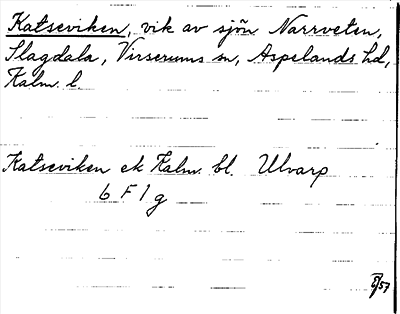 Katseviken, vik av sjön Narrveten,
Slagdala, Virserums sn, Aspelands hd,
Kalm. l.
Katseviken ek Kalm. bl. Ulvarp
6 F 1 g